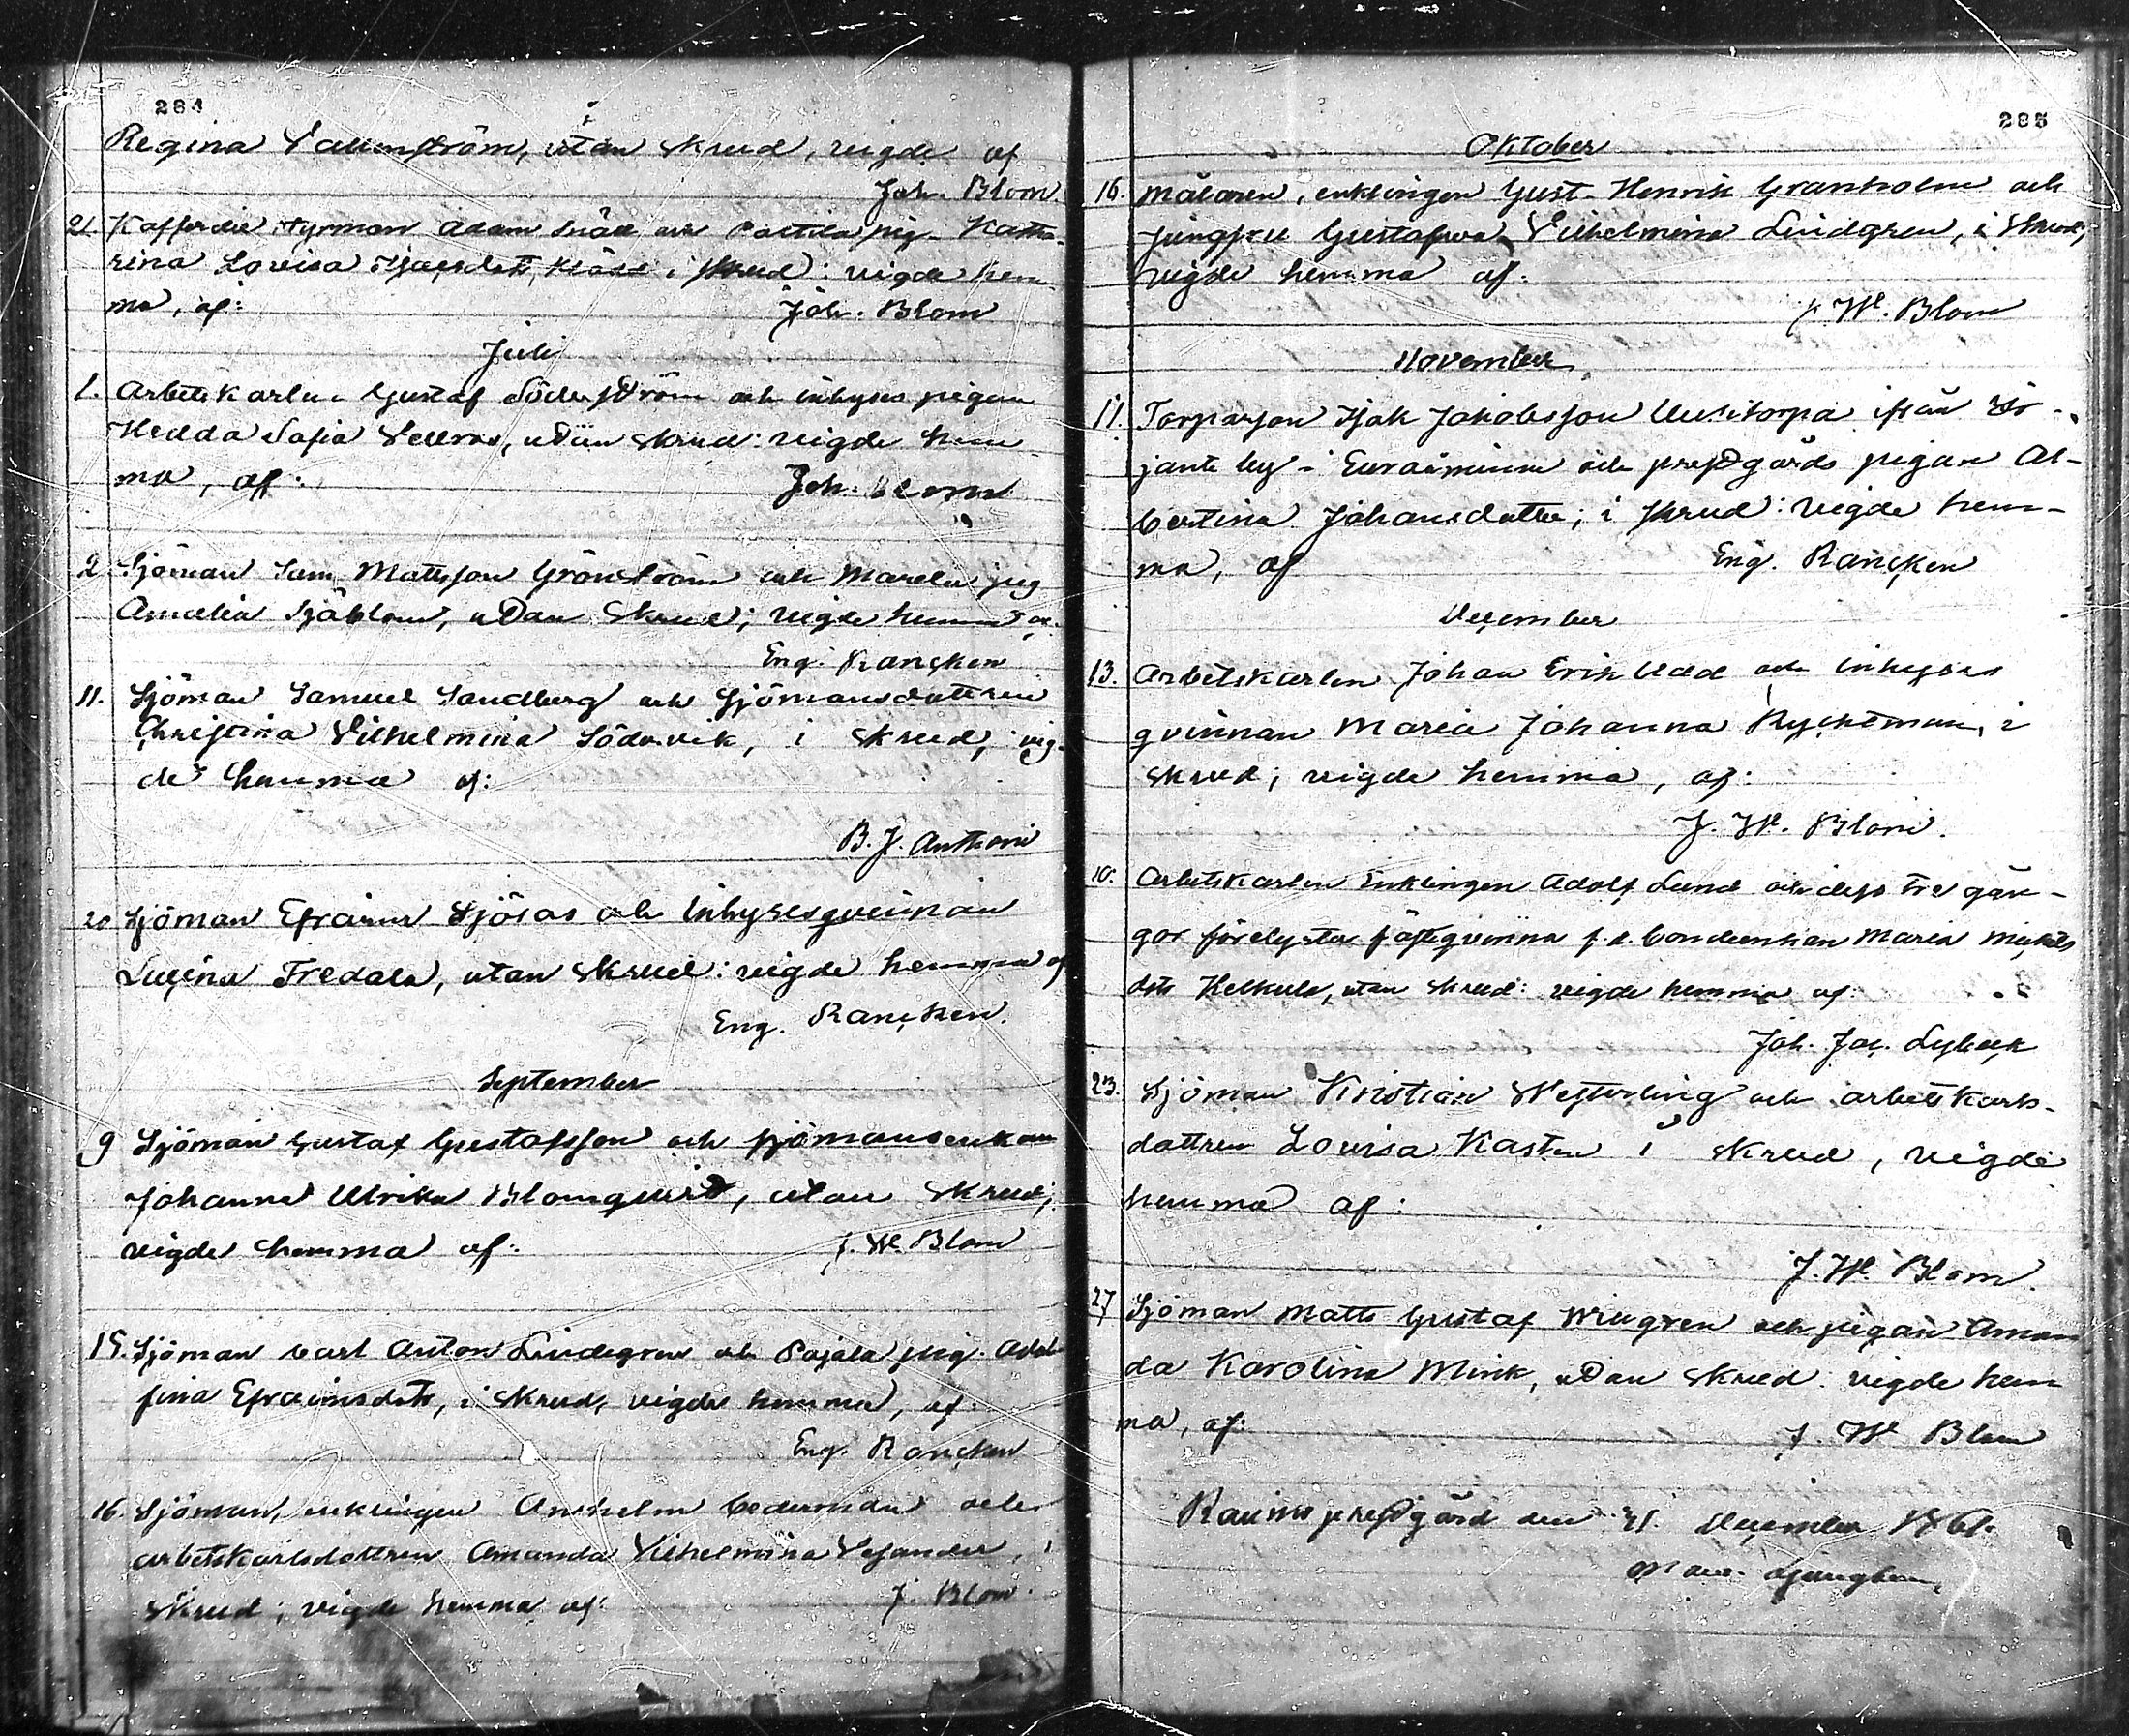 284
Regina utan skrud, vigde af
Joh. Blom.
21. Kofferdie Styrman Adam och pig. Katha-
rina Lovisa i skrud: vigde hem-
ma, af: Joh. Blom
Juli
1. Arbetskarlen Gustaf Söderström och inhyses pigan
Hedda Sofia utan skrud: vigde hem
ma, af: Joh. Blom
2 Sjöman Sam. Mattsson Grönström och Marela pig
Amalia Sjöblom, utan skrud; vigde hemma af.
Eng. Rancken
11. Sjöman Samuel Sandberg och Sjömansdottren
Christina Vilhelmina Södervik, i skrud, vig-
de hemma af:
B. J. Anthoni
20 Sjöman Efraim Sjöroos och Inhyresqvinnan
Lucina Fredala, utan skrud: vigde hemma af
Eng. Rancken.
September
9 Sjöman Gustaf Gustafsson och sjömansenkan
Johanna Ulrika Blomqvist, utan skrud;
vigde hemma af: J. W. Blom
15. Sjöman Carl Anton Lindegren och Pajala pig. Adol
fina Efraimsdtr, i skrud, vigde hemma, af:
Eng. Rancken
16. Sjöman, enklingen Anshelm Cederman och
arbetskarlsdottren Amanda Vilhelmina i
skrud; vigde hemma af: J. Blom.
285
Oktober
16. Målaren, enklingen Gust. Henrik Granholm och
jungfru Gustafva Vilhelmina Lindgren, i skrud;
vigde hemma af:
J. W. Blom
November
11. Torparson Isak Jakobsson Uusitorpa ifrån
jante by i Euraåminne och prestgårds pigan Al-
bertina Johansdotter; i skrud: vigde hem-
ma, af Eng. Rancken
December
13. Arbetskarlen Johan Erik Udd och inhyses
qvinnan Maria Johanna Ryckman, i
skrud; vigde hemma, af:
J. W. Blom.
10. Arbetskarlen Enklingen Adolf Lund och dess tre gån-
gor förelysta fästeqvinna f.d. bondeenkan Maria Mickels
dtr Kelkula, utan skrud: vigde hemma af:
Joh. Jac. Lybeck
23. Sjöman Kristian Westerling och arbetskarls-
dottren Lovisa Kasten i skrud, vigde
hemma af:
J. W. Blom.
27 Sjöman Matts Gustaf Wingren och pigan Aman
da Karolina Mink, utan skrud: vigde hem
ma, af: J. W. Blom
Raumo prestgård den 31. December 1861.